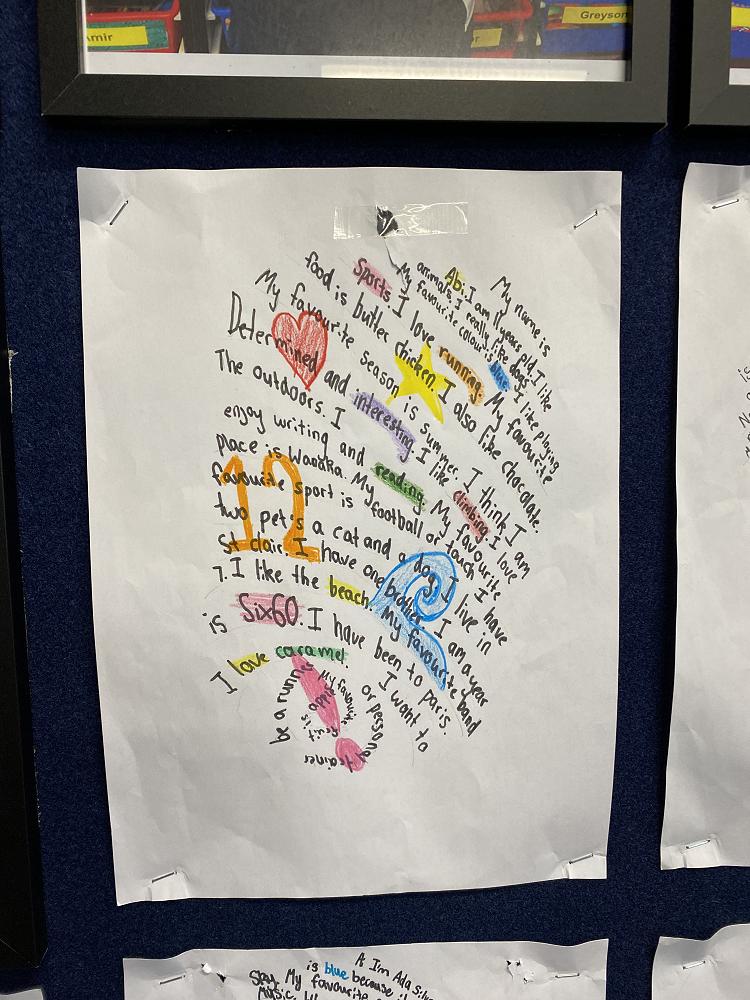 Amir
Greyson
My name is
Abi. I am 11 years old. I like
animals I really like dogs.
My favourite colour is blue. I like playing
Sports. I love running. My favourite
food is butter chicken. I also like chocolate.
My favourite season is summer. I think I am
Determined and interesting. I like climbing. I love
The outdoors. I
enjoy writing and reading. My favourite
place is Wanaka. My
favourite sport is football or touch. I have
two pet's a cat and a dog. I live in
St clair. I have one brother. I am a year
7. I like the beach. My favourite band
is Six60. I have been to paris.
I love caramel. I want to
be a runner or personal trainer
My favourite fruit is apple
I'm Ada
is blue because
sky. My favourite
Music.